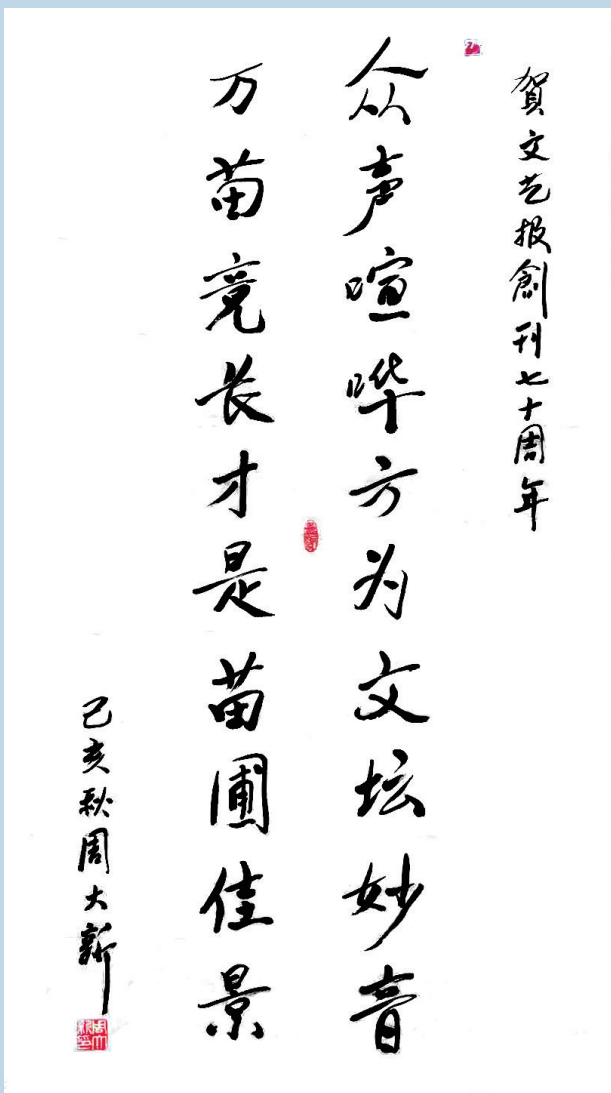 賀文艺报創刊七十周年
众声喧哗方为文坛妙音
万苗竞长才是苗圃佳景
己亥秋周大新